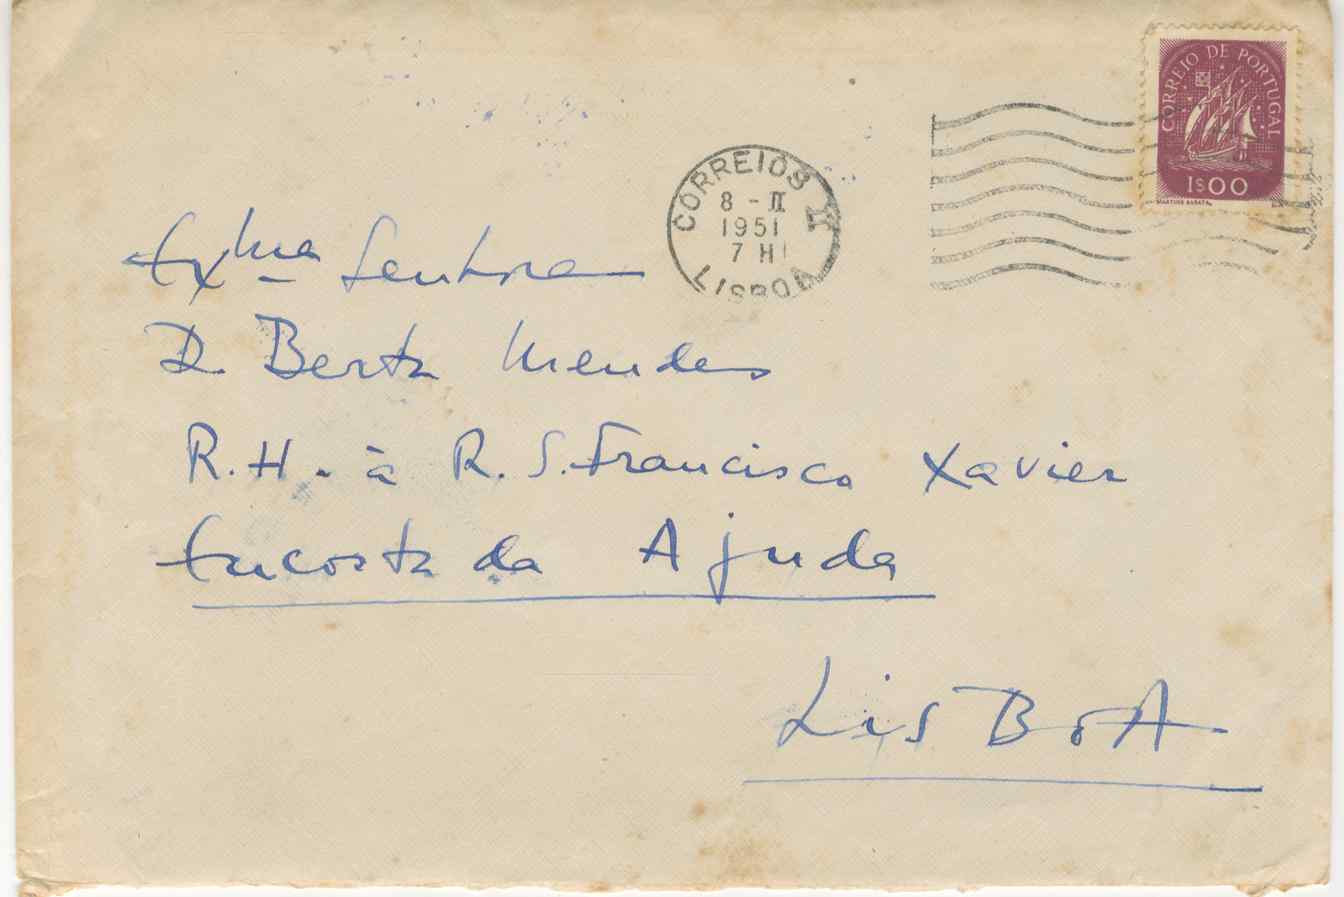 CORREIO DE PORTUGAL
1$00
MARTINS BARATA
CORREIOS
8 - II
1951
7 H
LISBOA
Exma Senhora
D. Berta Mendes
R. H. à R. S. Francisco Xavier
Encosta da Ajuda
LISBOA